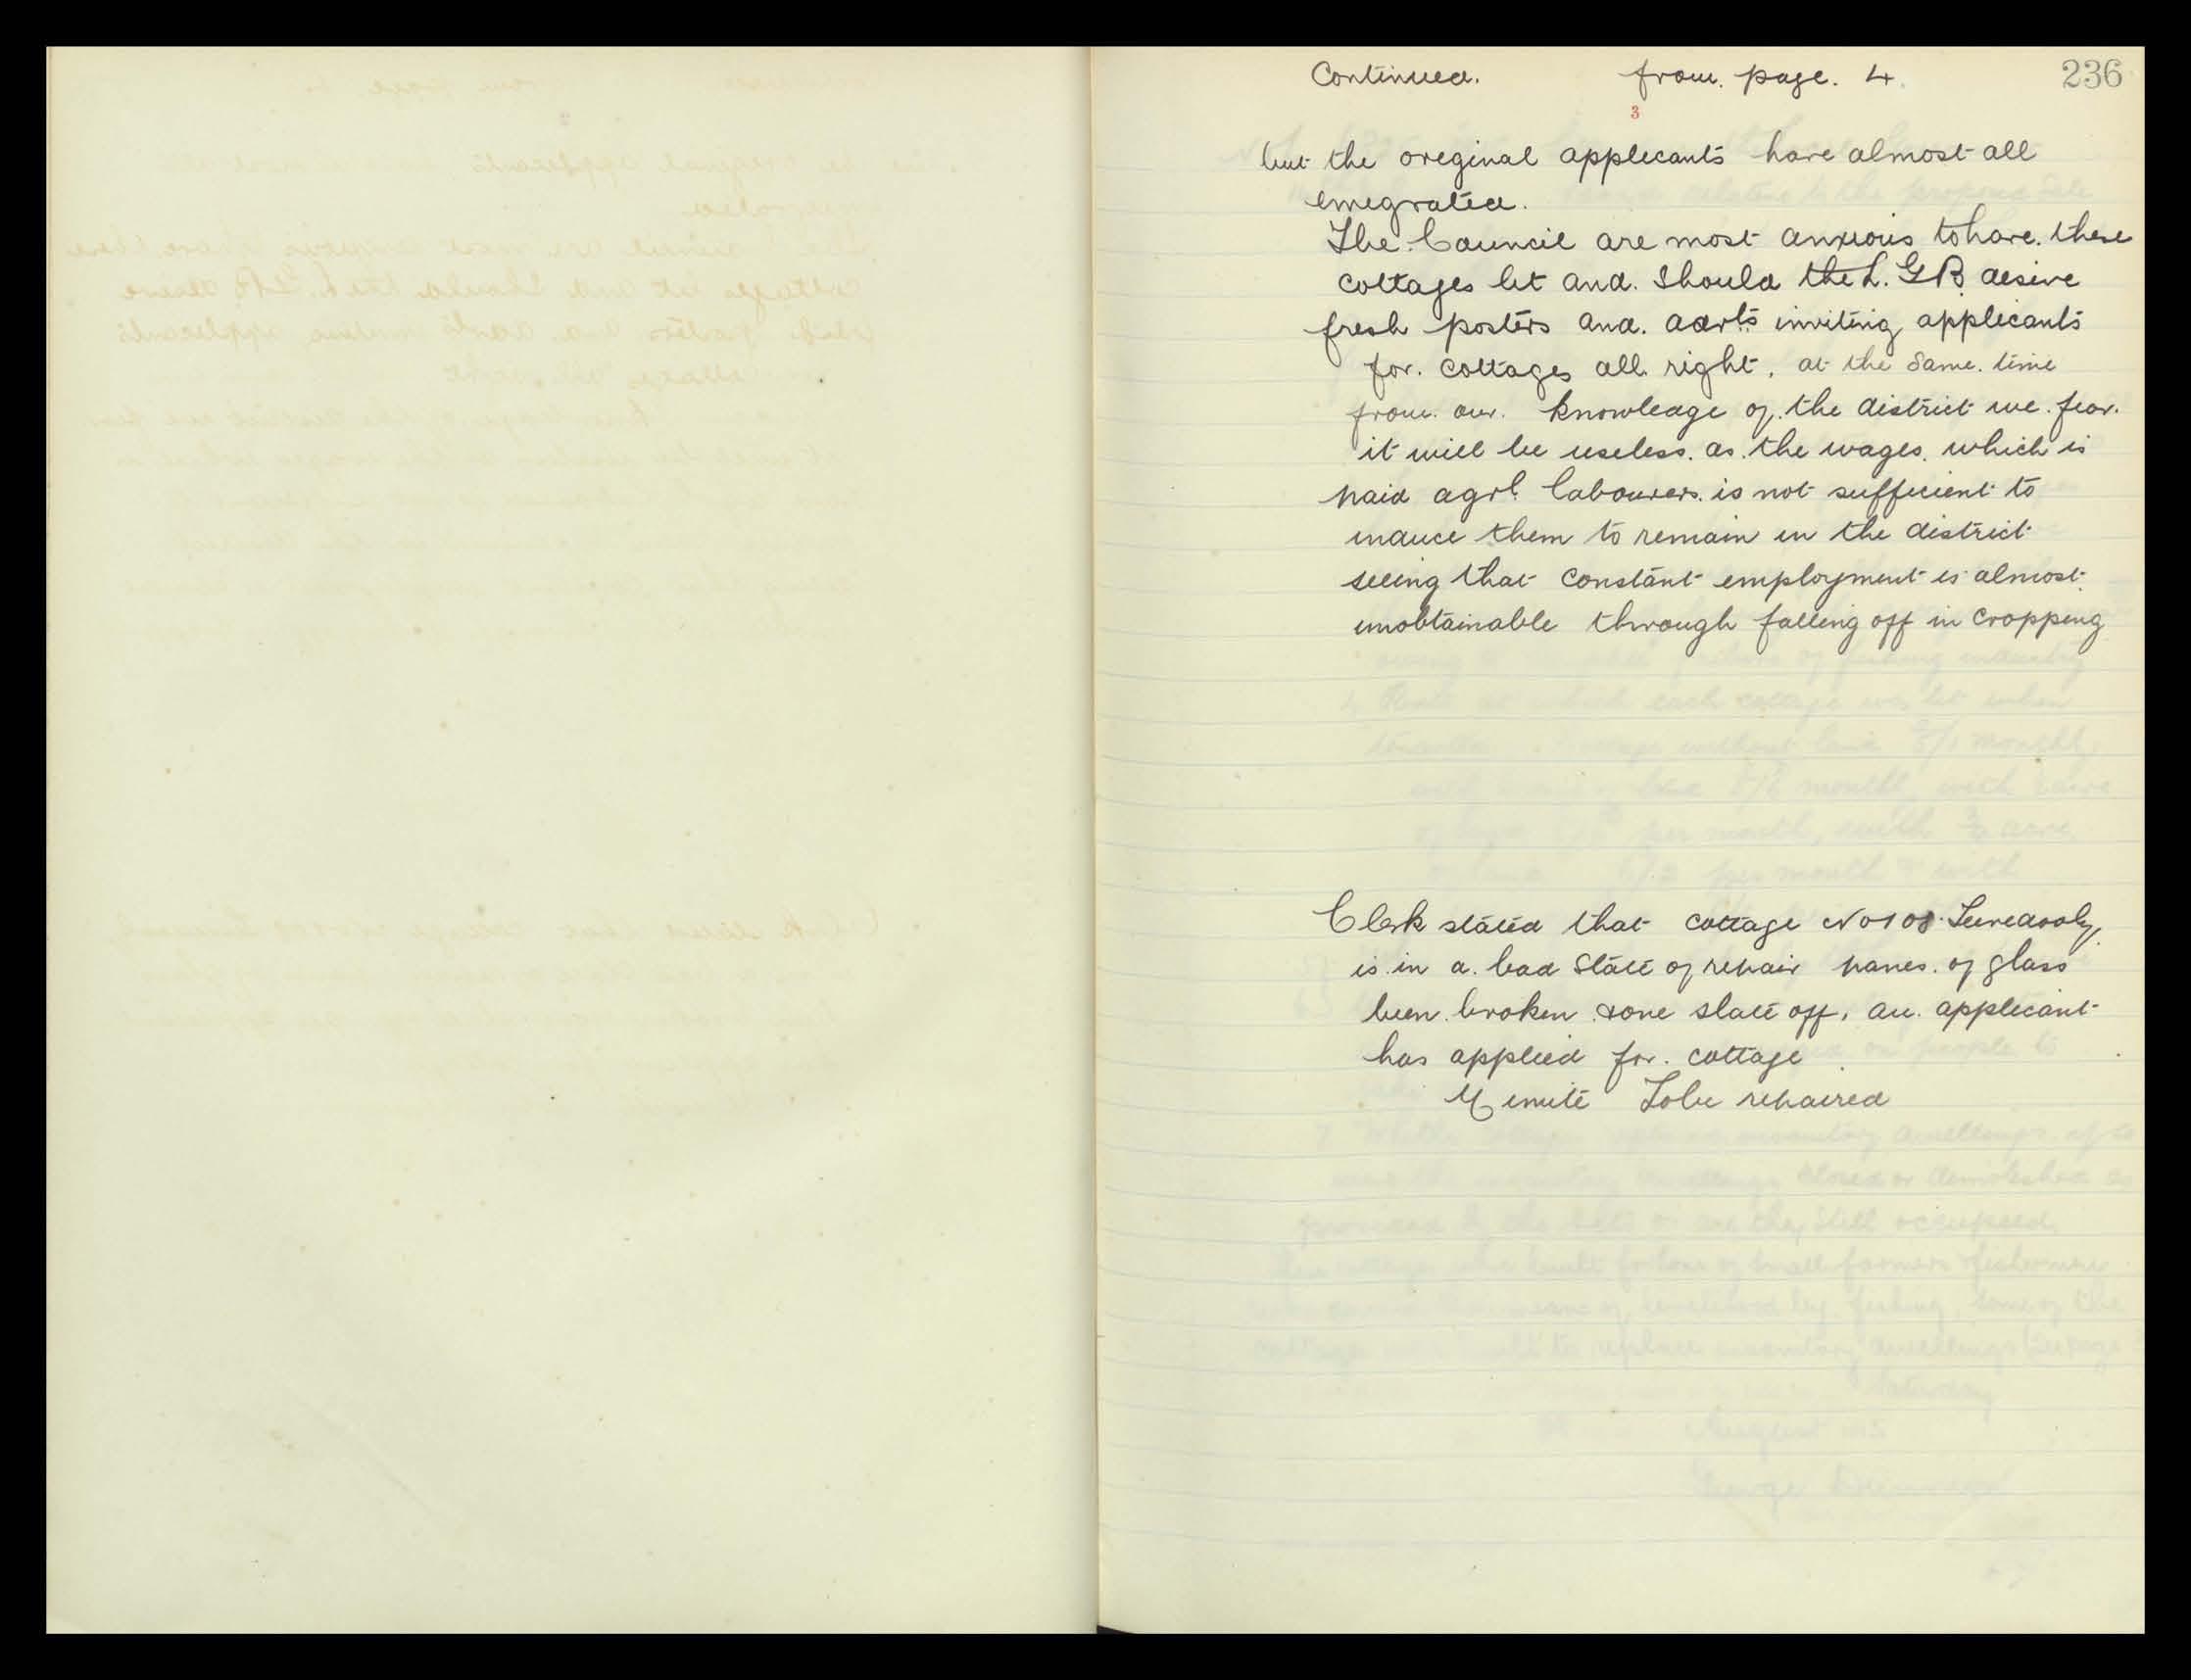 Continued. from. page. 4. 236
3
but the oreginal applecants have almost all
emegrated.
The Council are most anxious to have. these
cottages let and. Should the L. G B. desire
fresh posters and. advts inviting applicants
for. cottages all right, at the same. time
from. our. knowledge of. the district we. fear.
it will be useless. as. the wages. which is
paid agrl. labourers. is not sufficient to
induce them to remain in the district
seeing that constant employment is almost.
unobtainable through falling off in cropping
Clerk stated that cottage No 108
is in a. bad State of repair panes. of glass
been. broken & one slate off, an. applicant
has applied for. cottage
Minute To be repaired